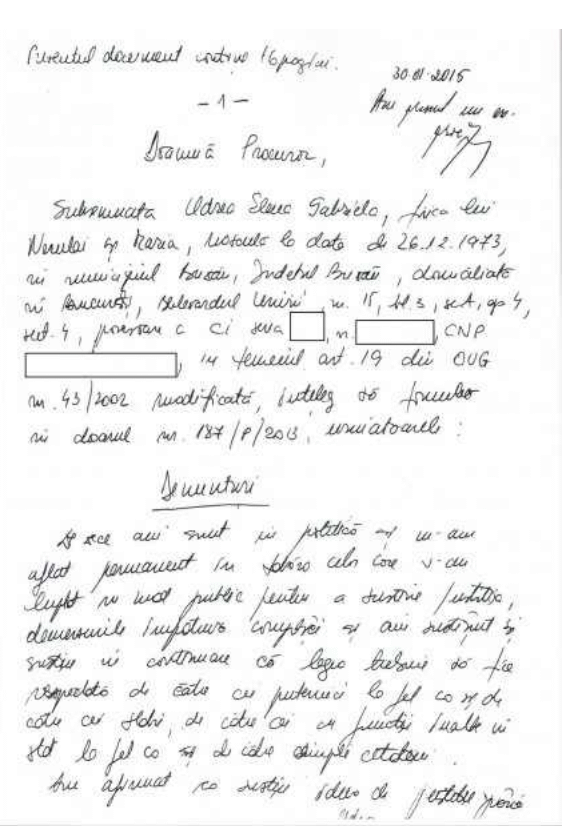 Prezentul document conține 16 pagini.
30 01 2015
- 1 -
Am primit un ex.
Doamnă Procuror,
Subsemnata Udrea Elena Gabriela, fiica lui
Neculai și Maria, născută la data de 26.12.1973,
în municipiul Buzău, Județul Buzău, domiciliată
în București, Bulevardul Unirii, nr. 15, bl. 3, sc A, ap 4,
sect. 4, posesoare a CI seria , nr. , CNP
, în temeiul art. 19 din OUG
nr. 43/2002 modificată, înțeleg să formulez
în dosarul nr. 187/P/2013, următoarele:
Denunțuri
De zece ani sunt în politică și m-am
aflat permanent în tabăra celor care s-au
luptat în mod public pentru a susține Justiția,
demersurile împotriva corupției și am susținut și
susțin în continuare că legea trebuie să fie
respectată de către cei puternici la fel ca și de
către cei slabi, de către cei cu funcții înalte în
stat la fel ca și de către simplii cetățeni.
Am afirmat ca susțin ideea de justiție până